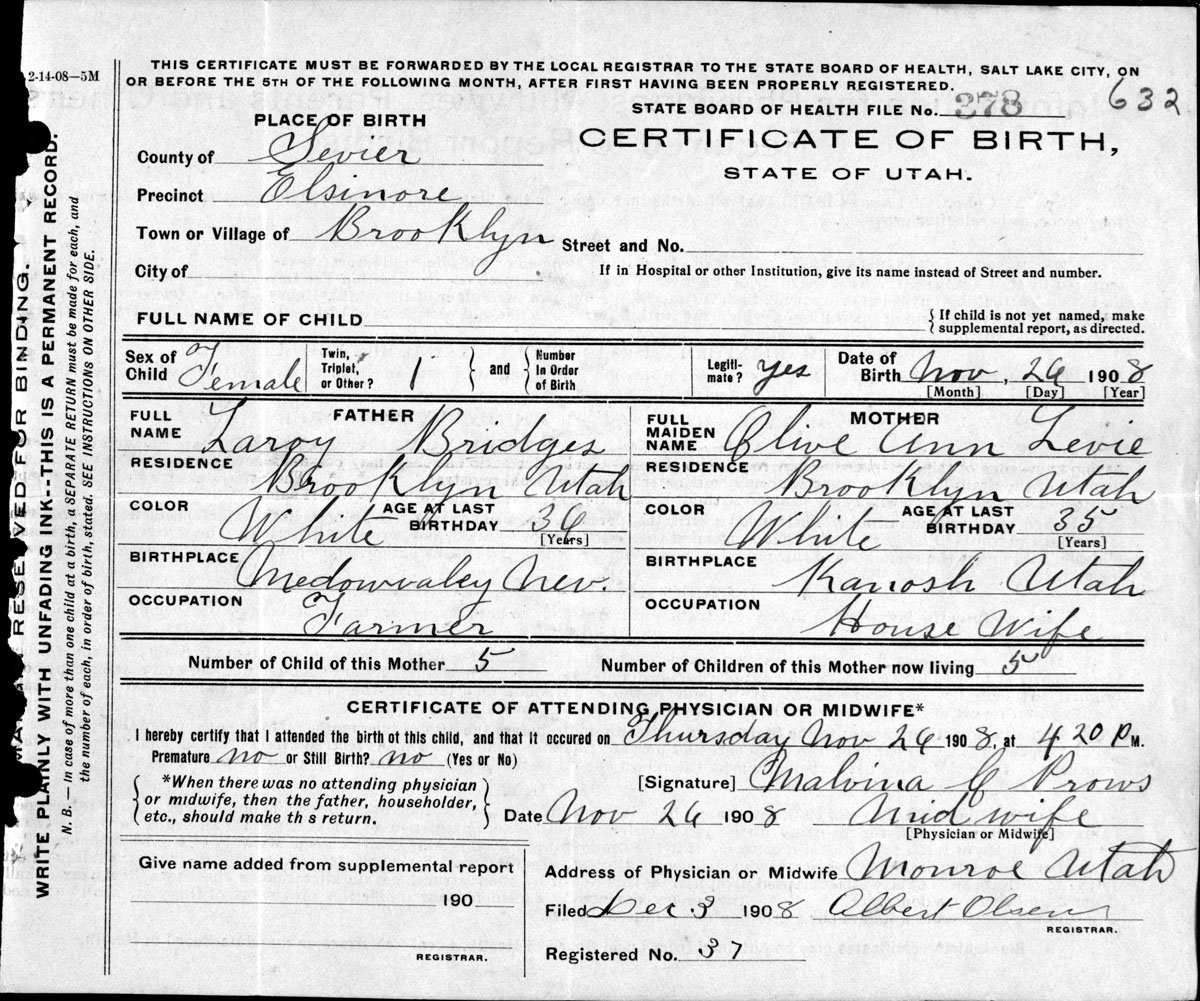 2-14-08—5M
THIS CERTIFICATE MUST BE FORWARDED BY THE LOCAL REGISTRAR TO THE STATE BOARD OF HEALTH, SALT LAKE CITY, ON
OR BEFORE THE 5TH OF THE FOLLOWING MONTH, AFTER FIRST HAVING BEEN PROPERLY REGISTERED.
STATE BOARD OF HEALTH FILE No. 378 632
PLACE OF BIRTH
CERTIFICATE OF BIRTH,
STATE OF UTAH.
County of Sevier
Precinct Elsinore
Town or Village of Brooklyn Street and No.
City of If in Hospital or other Institution, give its name instead of Street and number.
FULL NAME OF CHILD { If child is not yet named, make
supplemental report, as directed.
Sex of Child Female Twin, Triplet, or Other? 1 } and { Number In Order of Birth Legiti-mate? yes Date of Birth Nov, 26 1908
[Month] [Day] [Year]
FATHER MOTHER
FULL NAME Laroy Bridges FULL MAIDEN NAME Olive Ann Levie
RESIDENCE Brooklyn Utah RESIDENCE Brooklyn Utah
COLOR White AGE AT LAST BIRTHDAY 36 [Years] COLOR White AGE AT LAST BIRTHDAY 35 [Years]
BIRTHPLACE Medowvaley Nev. BIRTHPLACE Kanosh Utah
OCCUPATION Farmer OCCUPATION House Wife
Number of Child of this Mother 5 Number of Children of this Mother now living 5
CERTIFICATE OF ATTENDING PHYSICIAN OR MIDWIFE*
I hereby certify that I attended the birth of this child, and that it occured on Thursday Nov 26 1908, at 4 20 P M.
Premature no or Still Birth? no (Yes or No)
{ *When there was no attending physician
or midwife, then the father, householder,
etc., should make th s return. }
[Signature] Malvina C Prows
Date Nov 26 1908 Mid wife
[Physician or Midwife]
Give name added from supplemental report
190
REGISTRAR.
Address of Physician or Midwife Monroe Utah
Filed Dec 3 1908 Albert Olsen
REGISTRAR.
Registered No. 37
RESERVED FOR BINDING.
WRITE PLAINLY WITH UNFADING INK--THIS IS A PERMANENT RECORD.
N. B. — In case of more than one child at a birth, a SEPARATE RETURN must be made for each, and
the number of each, in order of birth, stated. SEE INSTRUCTIONS ON OTHER SIDE.